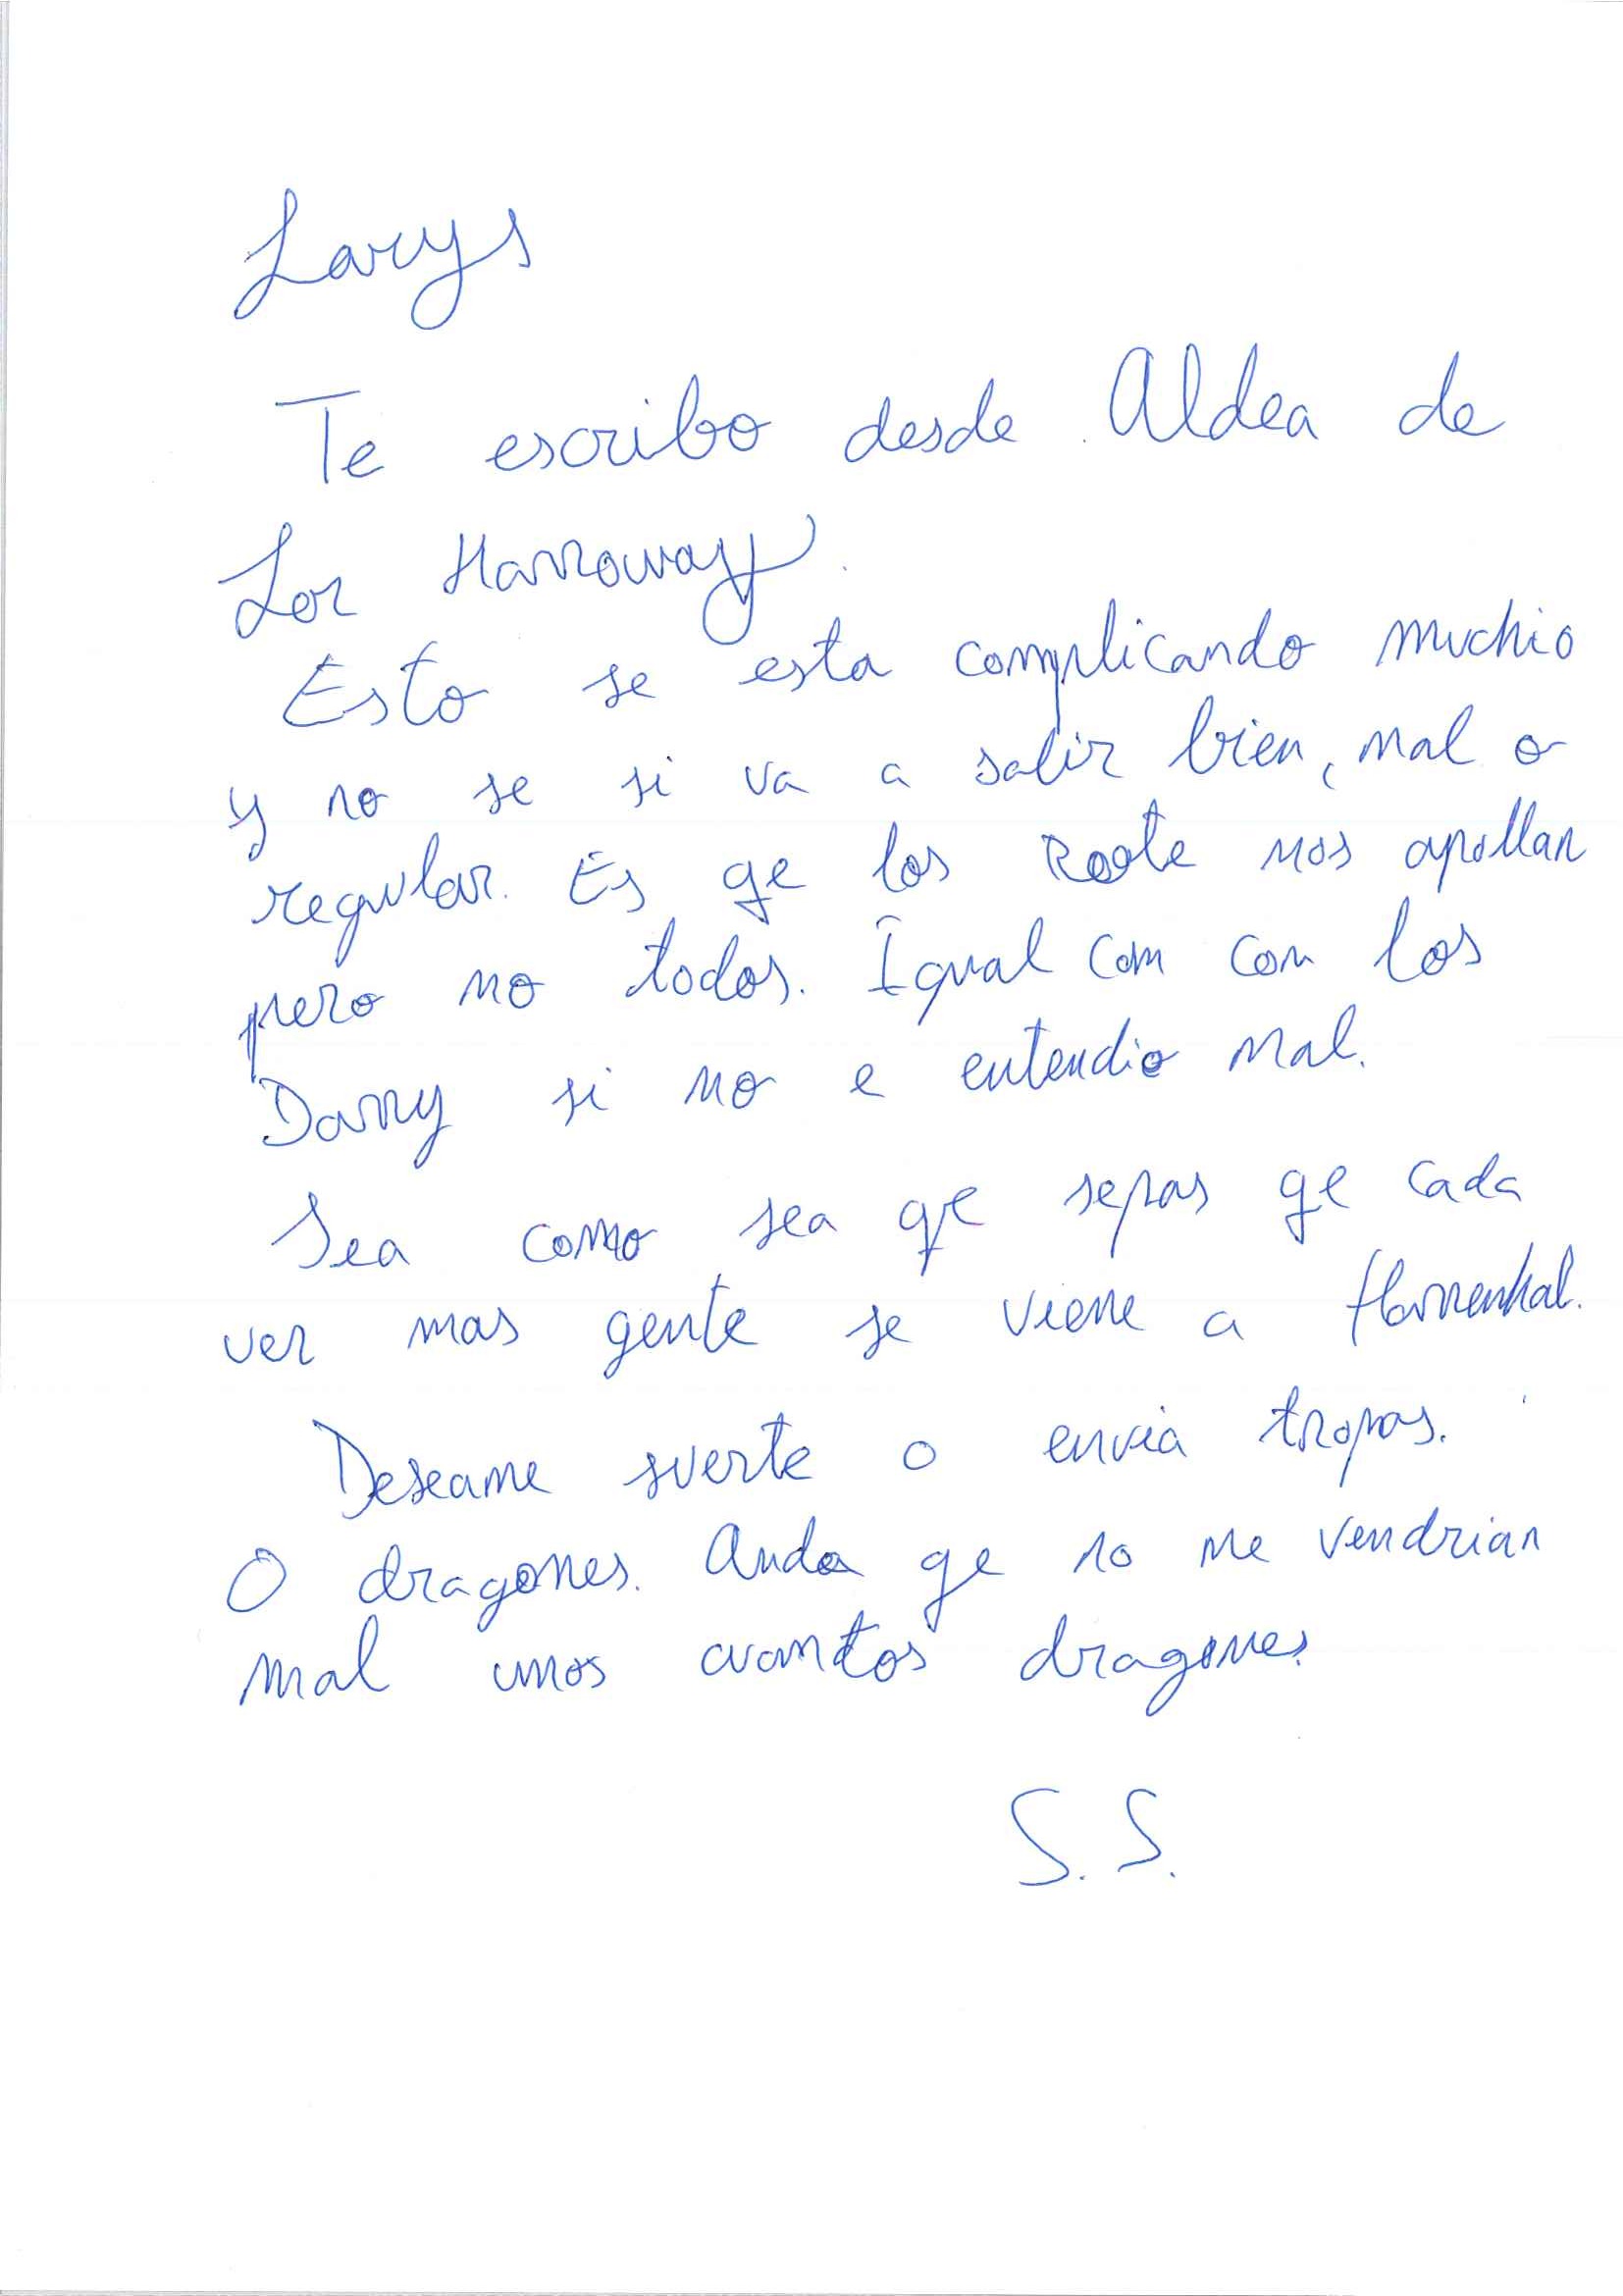 Larys
Te escribo desde Aldea de
Lor Harroway.
Esto se esta complicando muchio
y no se si va a salir bien, mal o
regular. Es qe los Roote nos apollan
pero no todos. Igual com con los
Darry si no e entendio mal.
Sea como sea qe sepas qe cada
ver mas gente se viene a Harrenhal.
Deseame suerte o envia tropas.
O dragones. Anda qe no me vendrian
mal unos cuantos dragones.
S.S.